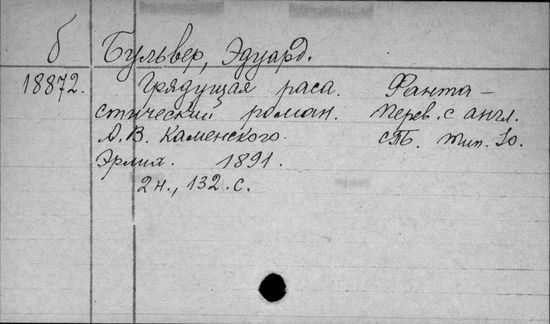 б
Бульвер, Эдуард.
18872. Грядущая раса. Фанта-
стический роман. Перев. с англ.
А. В. Каменского. СПб. тип. Ю.
Эрлих. 1891.
2 н., 132 с.